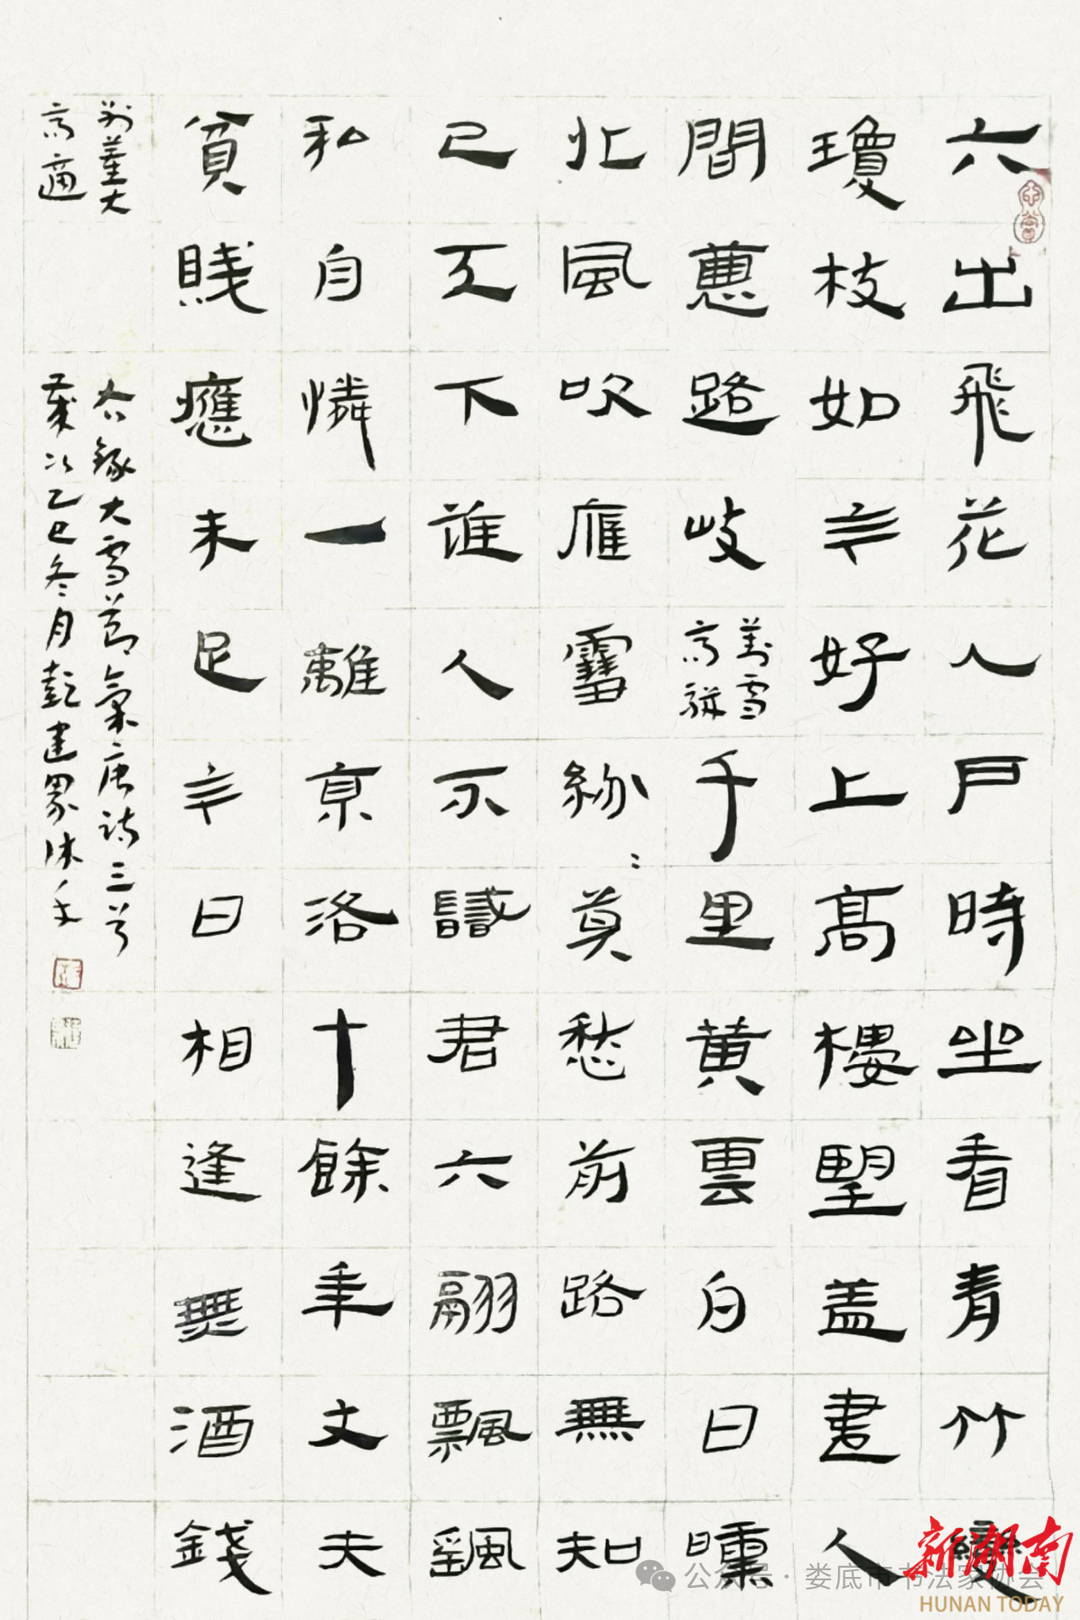 六出飛花入戶時坐看青竹變
瓊枝如今好上高樓望盖盡人
間惡路岐
對雪
高駢
千里黃雲白日曛
北風吹雁雪紛〻莫愁前路無知
已天下誰人不識君六翮飄颻
私自憐一離京洛十餘年丈夫
貧賤應未足今日相逢無酒錢
別董大
高適
右錄大雪節氣唐詩三首
歲次乙巳冬月彭建沐手
公众号·娄底市书法家协会
新湖南
HUNAN TODAY